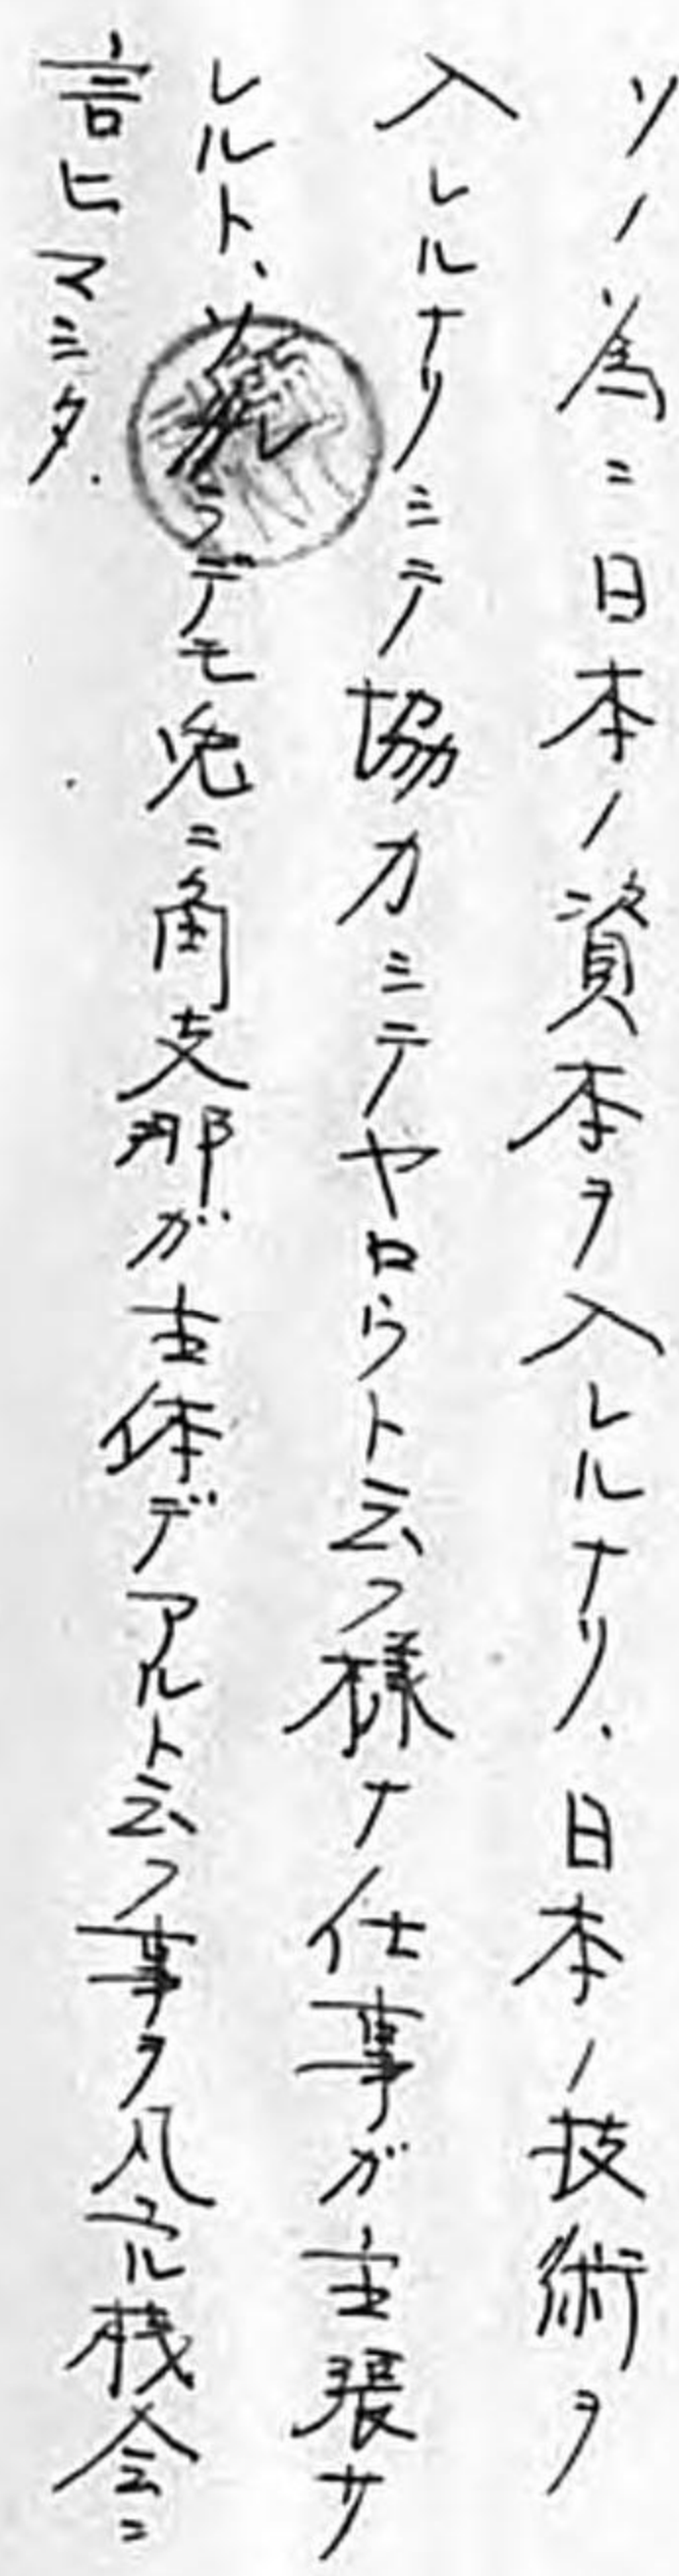 ソノ為ニ日本ノ資本ヲ入レルナリ、日本ノ技術ヲ
入レルナリシテ協力シテヤロウト云フ様ナ仕事ガ主張サ
レルト、ソレデモ兎ニ角支那ガ主体デアルト云フ事ヲ凡ユル機会ニ
言ヒマシタ.